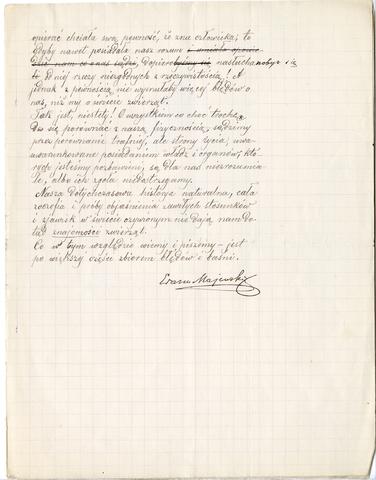 opierać chciała swą pewność, że zna człowieka, to
gdyby nawet posiadała nasz rozum i umiała opowie-
dzieć nam co o nas sądzi, dopiero nasłuchałoby się
to od niej rzeczy niezgodnych z rzeczywistością! A
jednak z pewnością nie wypowiada więcej błędów o
nas, niż my o świecie zwierząt.
Tak jest, niestety! O wszystkiem co choć trochę
da się porównać z naszą fizycznością, sądzimy
przez porównanie trafniej, ale strony życia, uwa-
runkowane posiadaniem władz i organów, któ-
rych jesteśmy pozbawieni, są dla nas niezrozumia-
łe, albo ich zgoła niedostrzegamy.
Nasza dotychczasowa historja naturalna, cała
zoologia i próby objaśnienia zawiłych stosunków
i zjawisk w świecie ożywionym nie dają nam do-
tąd znajomości zwierząt.
Co w tym względzie wiemy i piszemy – jest
po większej części zbiorem błędów i baśni.
Erazm Majewski